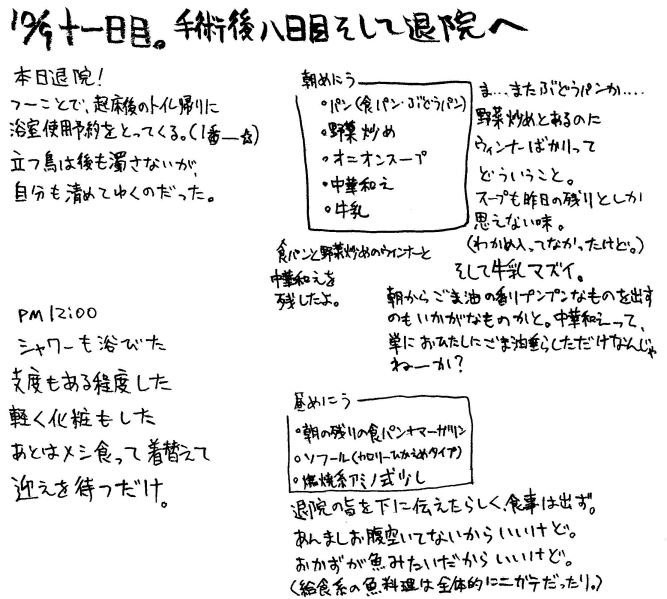 10/9 十一日目。手術後八日目そして退院へ
本日退院！
つーことで、起床後のトイレ帰りに
浴室使用予約をとってくる。(1番―☆)
立つ鳥は後も濁さないが、
自分も清めてゆくのだった。
PM 12:00
シャワーも浴びた
支度もある程度した
軽く化粧もした
あとはメシ食って着替えて
迎えを待つだけ。
朝めにう
・パン(食パン・ぶどうパン)
・野菜炒め
・オニオンスープ
・中華和え
・牛乳
食パンと野菜炒めのウィンナーと
中華和えを
残したよ。
ま…またぶどうパンか‥‥
野菜炒めとあるのに
ウィンナーばかりって
どういうこと。
スープも昨日の残りとしか
思えない味。
(わかめ入ってなかったけど。)
そして牛乳マズイ。
朝からごま油の香りプンプンなものを出す
のもいかがなものかと。中華和えって、
単におひたしにごま油垂らしただけなんじゃ
ねーか？
昼めにう
・朝の残りの食パン+マーガリン
・ソフール(カロリーひかえめタイプ)
・燃焼系アミノ式少し
退院の旨を下に伝えたらしく、食事は出ず。
あんましお腹空いてないからいいけど。
おかずが魚みたいだからいいけど。
(給食系の魚料理は全体的にニガテだったり。)